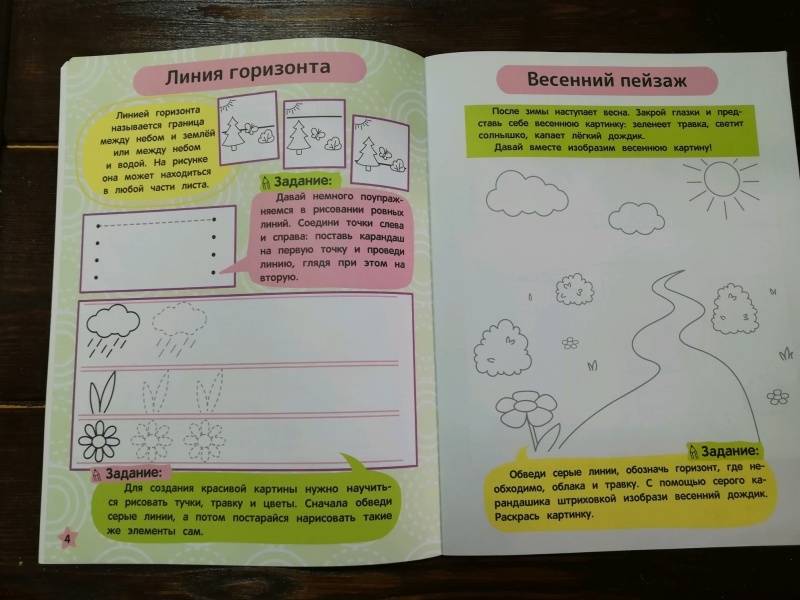 Линия горизонта
Линией горизонта
называется граница
между небом и землёй
или между небом
и водой. На рисунке
она может находиться
в любой части листа.
Задание:
Давай немного поупраж-
няемся в рисовании ровных
линий. Соедини точки слева
и справа: поставь карандаш
на первую точку и проведи
линию, глядя при этом на
вторую.
Задание:
Для создания красивой картины нужно научить-
ся рисовать тучки, травку и цветы. Сначала обведи
серые линии, а потом постарайся нарисовать такие
же элементы сам.
4
Весенний пейзаж
После зимы наступает весна. Закрой глазки и пред-
ставь себе весеннюю картинку: зеленеет травка, светит
солнышко, капает лёгкий дождик.
Давай вместе изобразим весеннюю картину!
Задание:
Обведи серые линии, обозначь горизонт, где не-
обходимо, облака и травку. С помощью серого ка-
рандашика штриховкой изобрази весенний дождик.
Раскрась картинку.